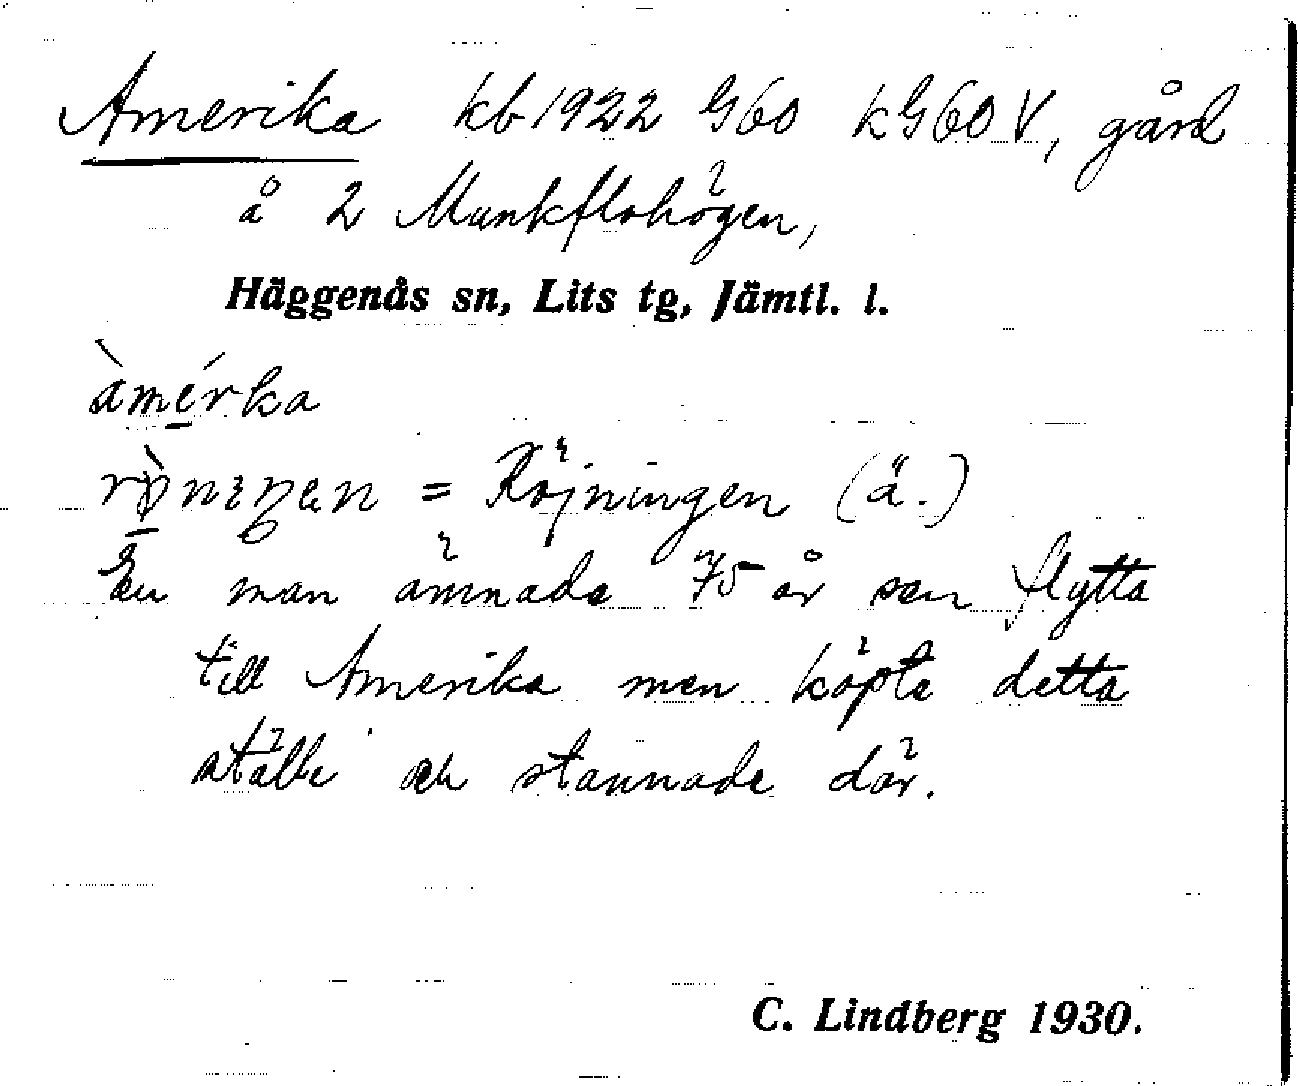 Amerika kb 1922 G60 kG60 V, gård
å 2 Munkflohögen,
Häggenås sn, Lits tg, Jämtl. l.
àmérka
= Röjningen (ä.)
En man ämnade 75 år sen flytta
till Amerika men köpte detta
ställe och stannade där.
C. Lindberg 1930.